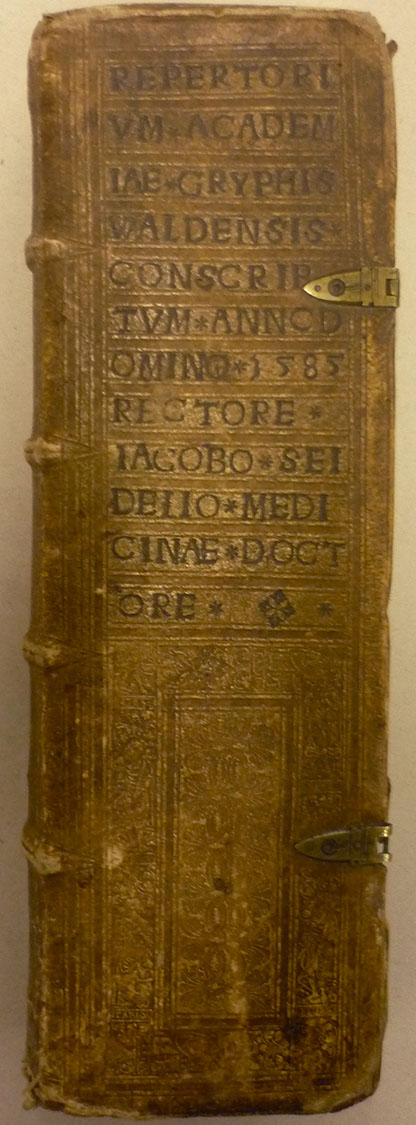 REPERTORI
VM * ACADEM
IAE * GRYPHIS
WALDENSIS *
CONSCRIP
TVM * ANNO D
OMINO * 1585
RECTORE *
IACOBO * SEI
DELIO * MEDI
CINAE * DOCT
ORE * *